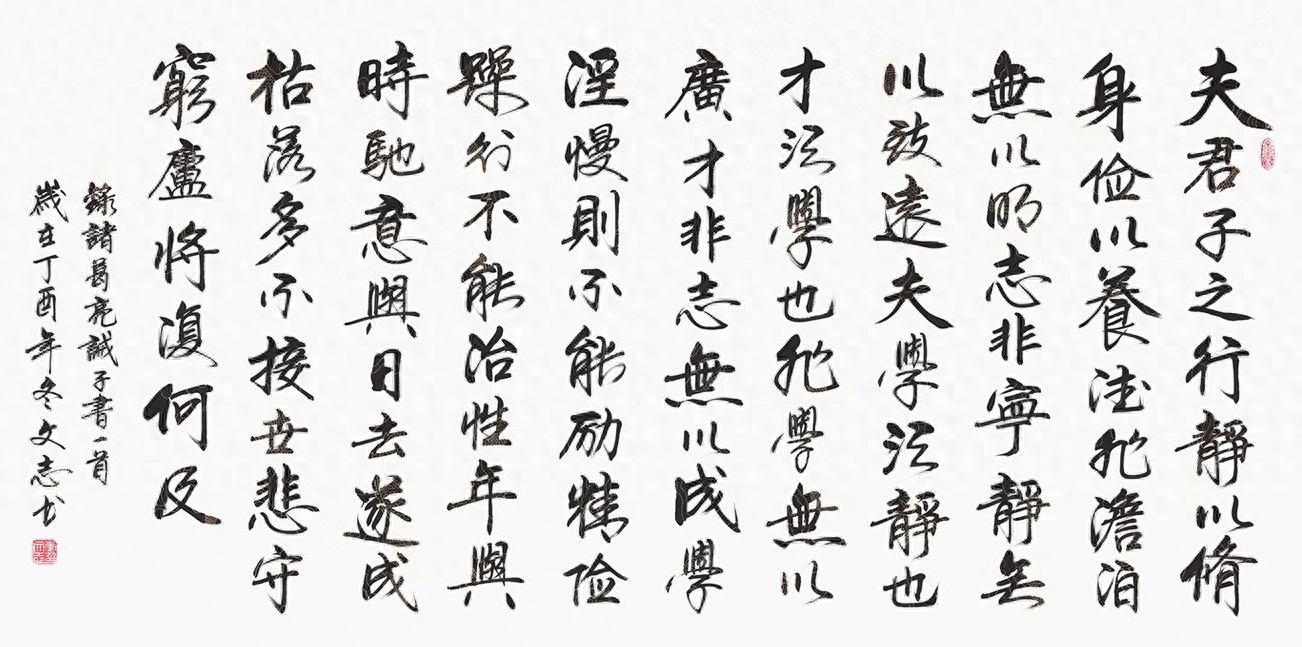 夫君子之行靜以脩
身俭以養德非澹泊
無以明志非寧靜无
以致遠夫學須靜也
才須學也非學無以
廣才非志無以成學
淫慢則不能励精险
躁行不能治性年與
時馳意與日去遂成
枯落多不接世悲守
窮廬将復何及
錄諸葛亮誡子書一首
歲在丁酉年冬文志书